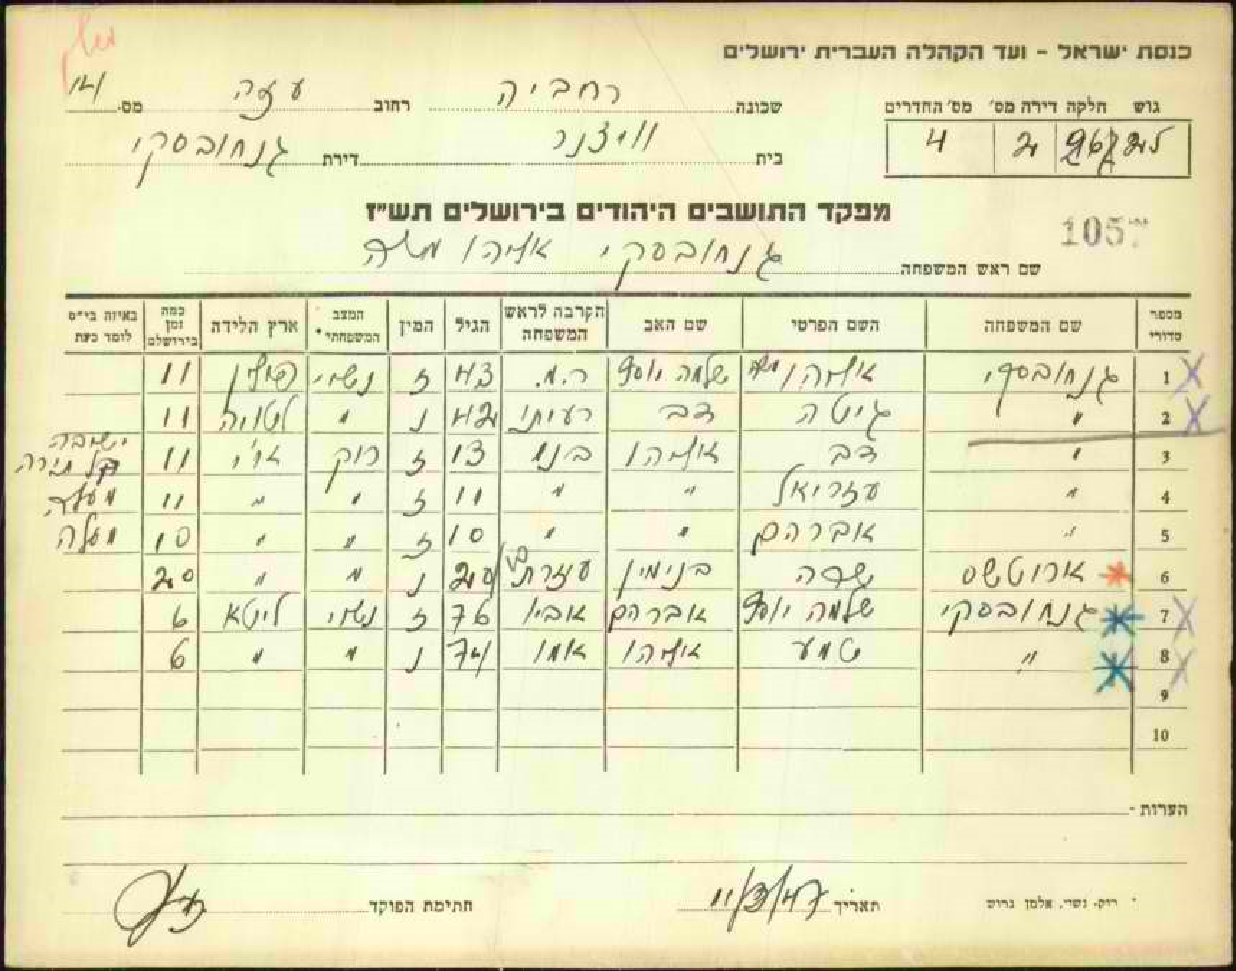 כנסת ישראל - ועד הקהלה העברית ירושלים
גוש חלקה דירה מס' מס' החדרים
2 4
שכונה רחביה רחוב עזה מס.
בית וויצנר דירת גנחובסקי
מפקד התושבים היהודים בירושלים תש"ז
1057
שם ראש המשפחה גנחובסקי אליהו משה
מספר סדורי שם המשפחה השם הפרטי שם האב הקרבה לראש המשפחה הגיל המין המצב המשפחתי* ארץ הלידה כמה זמן בירושלם באיזה בי"ס לומד כעת
1 גנחובסקי אליהו משה שלמה יוסף ר.מ. 43 ז נשוי פולין 11
2 " גיטה דב רעיתו 42 נ " לטויה 11
3 " דב אליהו בנו 13 ז רוק א"י 11 ישיבה קול תורה
4 " עזריאל " " 11 ז " " 11 מעלה
5 " אברהם " " 10 ז " " 10 מעלה
6 שרה בנימין עוזרת 20 נ " " 20
7 גנחובסקי שלמה יוסף אברהם אביו 76 ז נשוי ליטא 6
8 " אליהו אמו 74 נ " " 6
9
10
הערות -
* רוק, נשוי, אלמן גרוש תאריך 11/3/47 חתימת הפוקד